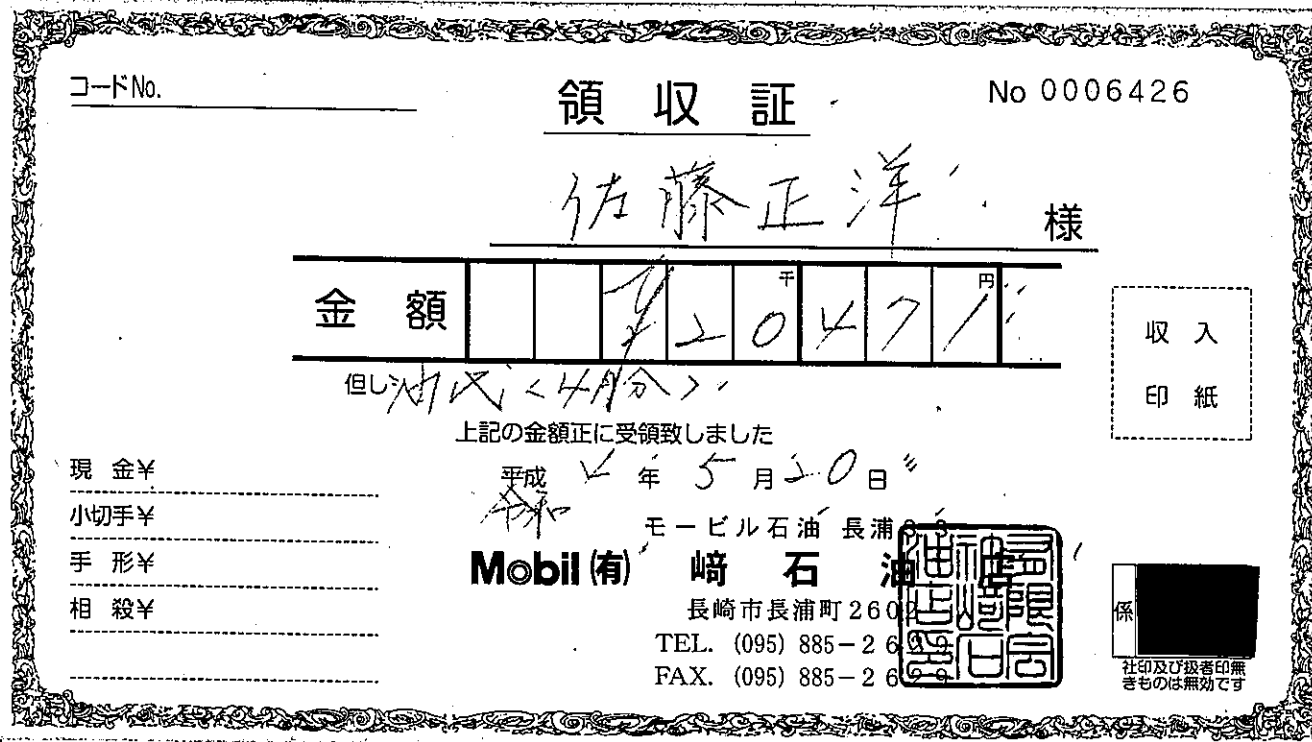 コードNo.
領収証
No 0006426
佐藤正洋 様
金額 ¥20471 千 円
但し 油代<4月分>
収入
印紙
上記の金額正に受領致しました
平成 令和 4年 5月 20日
現金¥
小切手¥
手形¥
相殺¥
モービル石油 長浦
Mobil (有) 﨑石油店
長崎市長浦町260
TEL. (095) 885-26
FAX. (095) 885-26
係
社印及び扱者印無
きものは無効です